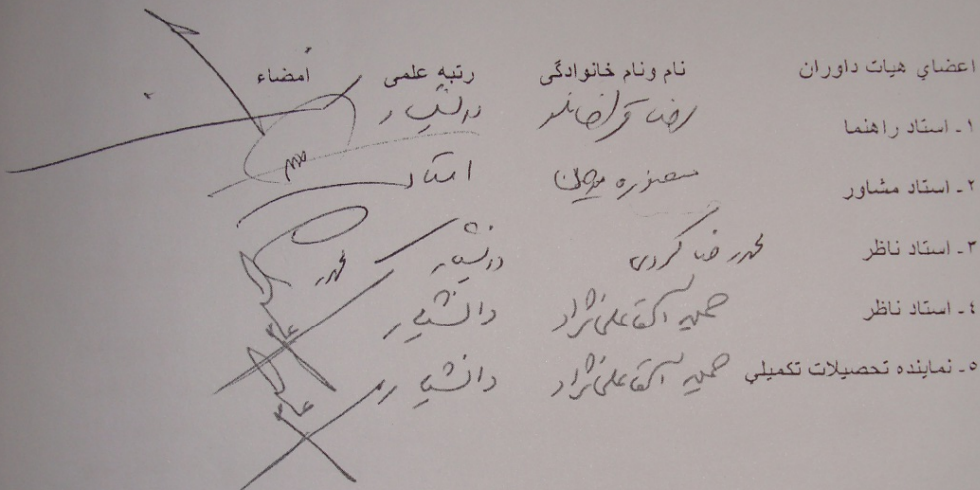 اعضاي هيات داوران نام ونام خانوادگی رتبه علمی امضاء
۱- استاد راهنما رضا دانشیار
۲- استاد مشاور استاد
۳- استاد ناظر محمدرضا کردی دانشیار
٤- استاد ناظر حمید آقاعلی‌نژاد دانشیار
٥- نماینده تحصیلات تکمیلي حمید آقاعلی‌نژاد دانشیار